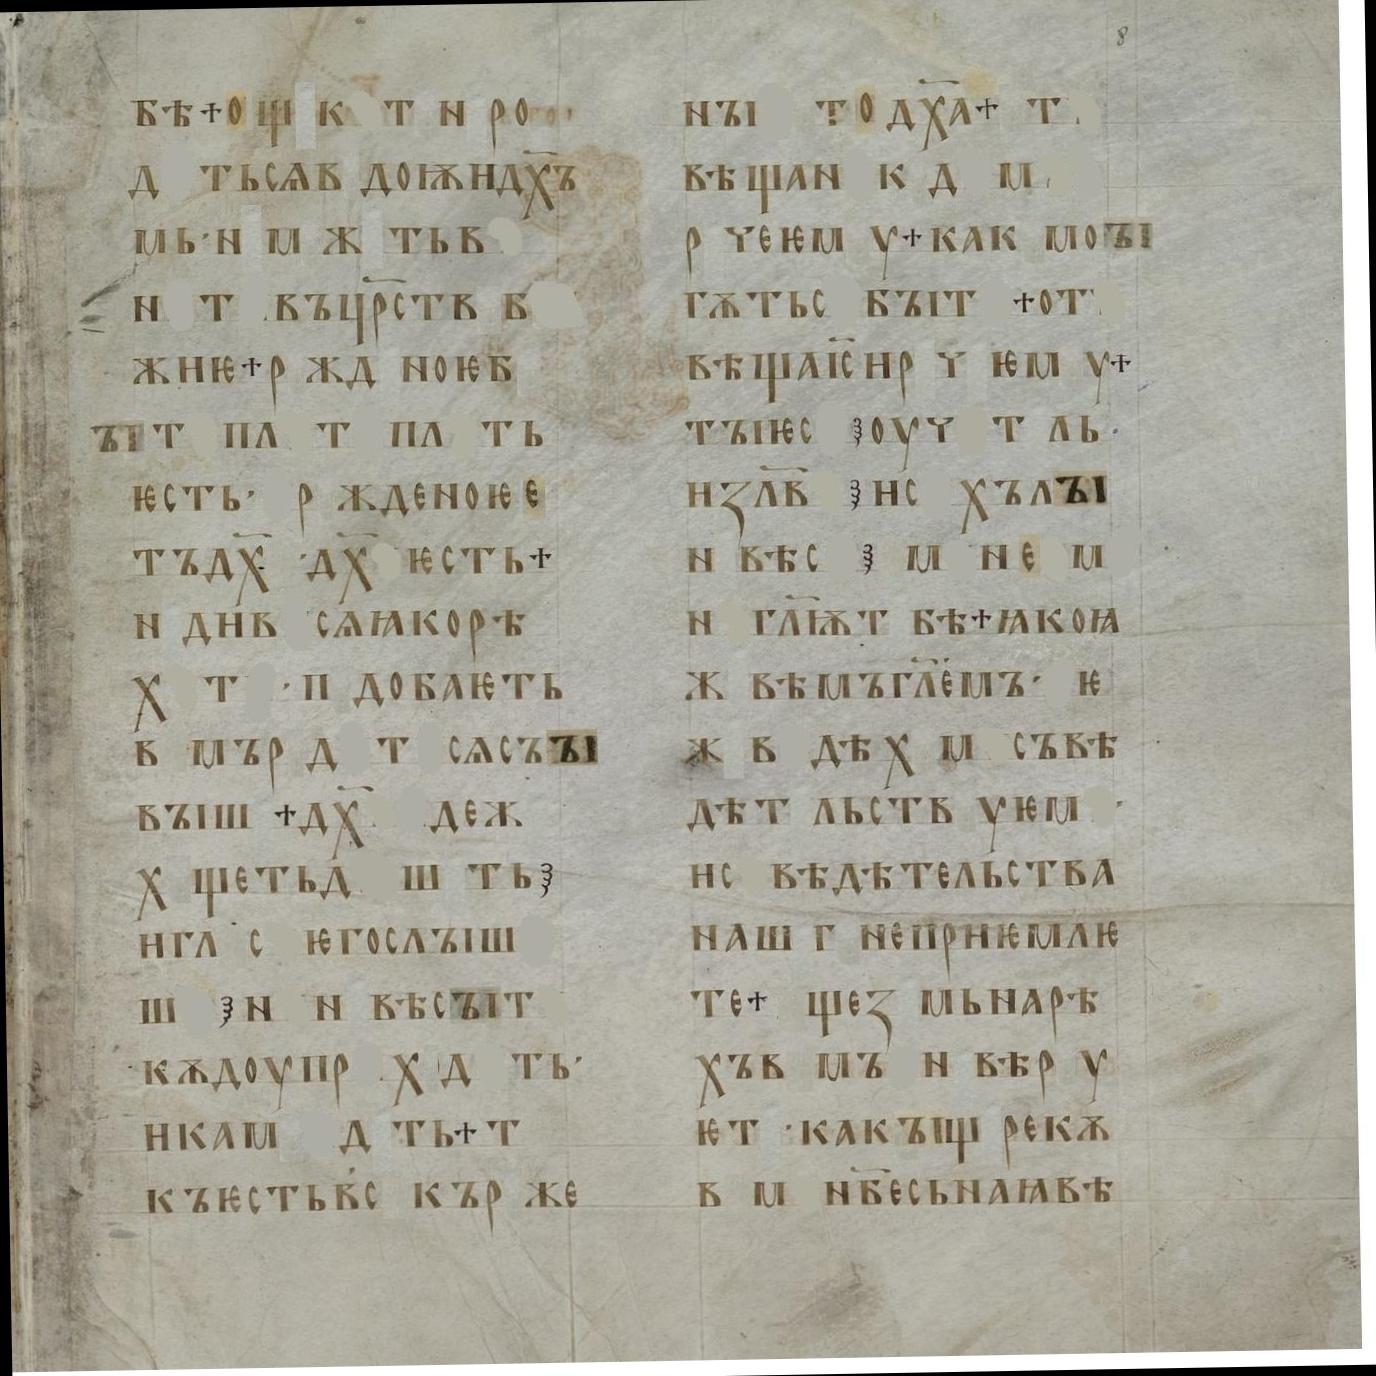 бѣ+ощ к т и ро
д тьсѧв доѭидх҃ъ
мь·н м ж тьв
н т въцр҃ств б
жию+р жд ноѥб
ꙑт пл т пл ть
ѥсть· р жденоѥе
тъдх҃ ·дх҃ ѥсть+
н днв сѧꙗкорѣ
х т ·п добаѥть
в мър д т сѧсъꙑ
вꙑш +дх҃ деж
х щетьд ш ть꙳
нгл с ѥгослꙑш
ш ꙳н н вѣсꙑт
кѫдоупр х д ть·
нкам д ть+т
къѥстьвс кър же
нꙑ тодх҃а+ т
вѣщан к д м
р чеѥм у+как моꙑ
гѫтьс бꙑт +от
вѣщаіс҃нр ч ѥм у+
тꙑѥс ꙳оуч т ль·
нꙁл҃в ꙳нс хълꙑ
н вѣс ꙳ м не м
н гл҃ѭт бѣ+ꙗкоꙗ
ж вѣмъгл҃емъ· ѥ
ж в дѣх м съвѣ
дѣт льств уѥм ·
нс вѣдѣтельства
наш г непрнѥмлѥ
те+ щеꙁ мьнарѣ
хъв мъ н вѣр у
ѥт ·какъщ рекѫ
в м нб҃есьнаꙗвѣ